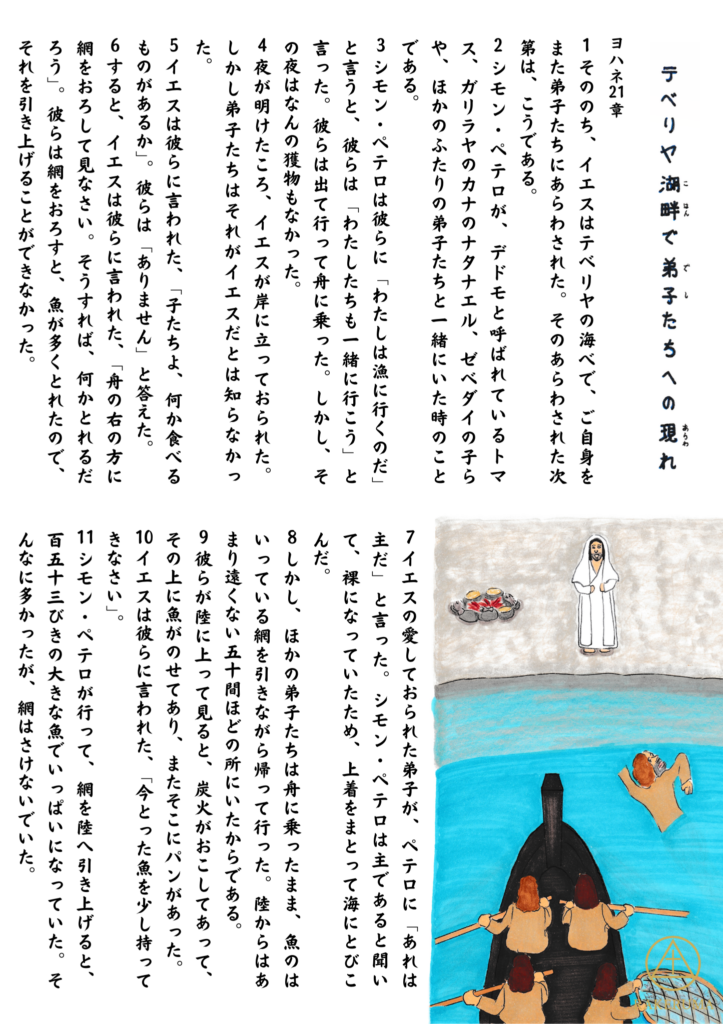 テベリヤ湖畔で弟子たちへの現れ
こはん
でし
あらわ
ヨハネ21章
1そののち、イエスはテベリヤの海べで、ご自身を
また弟子たちにあらわされた。そのあらわされた次
第は、こうである。
2シモン・ペテロが、デドモと呼ばれているトマ
ス、ガリラヤのカナのナタナエル、ゼベダイの子ら
や、ほかのふたりの弟子たちと一緒にいた時のこと
である。
3シモン・ペテロは彼らに「わたしは漁に行くのだ」
と言うと、彼らは「わたしたちも一緒に行こう」と
言った。彼らは出て行って舟に乗った。しかし、そ
の夜はなんの獲物もなかった。
4夜が明けたころ、イエスが岸に立っておられた。
しかし弟子たちはそれがイエスだとは知らなかっ
た。
5イエスは彼らに言われた、「子たちよ、何か食べる
ものがあるか」。彼らは「ありません」と答えた。
6すると、イエスは彼らに言われた、「舟の右の方に
網をおろして見なさい。そうすれば、何かとれるだ
ろう」。彼らは網をおろすと、魚が多くとれたので、
それを引き上げることができなかった。
7イエスの愛しておられた弟子が、ペテロに「あれは
主だ」と言った。シモン・ペテロは主であると聞い
て、裸になっていたため、上着をまとって海にとびこ
んだ。
8しかし、ほかの弟子たちは舟に乗ったまま、魚のは
いっている網を引きながら帰って行った。陸からはあ
まり遠くない五十間ほどの所にいたからである。
9彼らが陸に上って見ると、炭火がおこしてあって、
その上に魚がのせてあり、またそこにパンがあった。
10イエスは彼らに言われた、「今とった魚を少し持って
きなさい」。
11シモン・ペテロが行って、網を陸へ引き上げると、
百五十三びきの大きな魚でいっぱいになっていた。そ
んなに多かったが、網はさけないでいた。